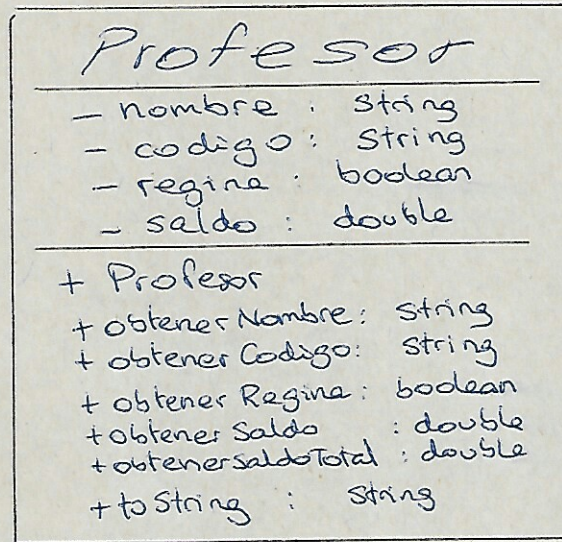 Profesor
- nombre : String
- codigo : String
- regina : boolean
- saldo : double
+ Profesor
+ obtenerNombre : String
+ obtener Codigo : String
+ obtener Regina : boolean
+ obtener Saldo : double
+ obtenerSaldoTotal : double
+ toString : String